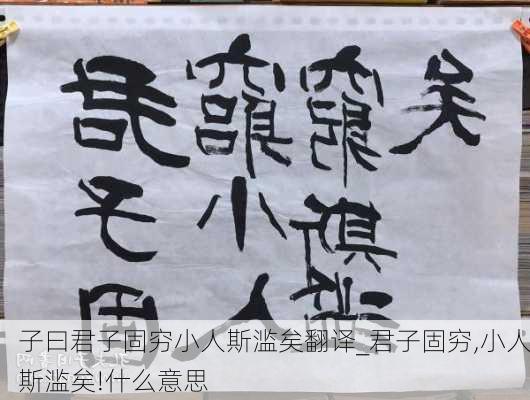 君子固
窮小人
窮斯濫
矣
子曰君子固穷小人斯滥矣翻译_君子固穷,小人
斯滥矣!什么意思